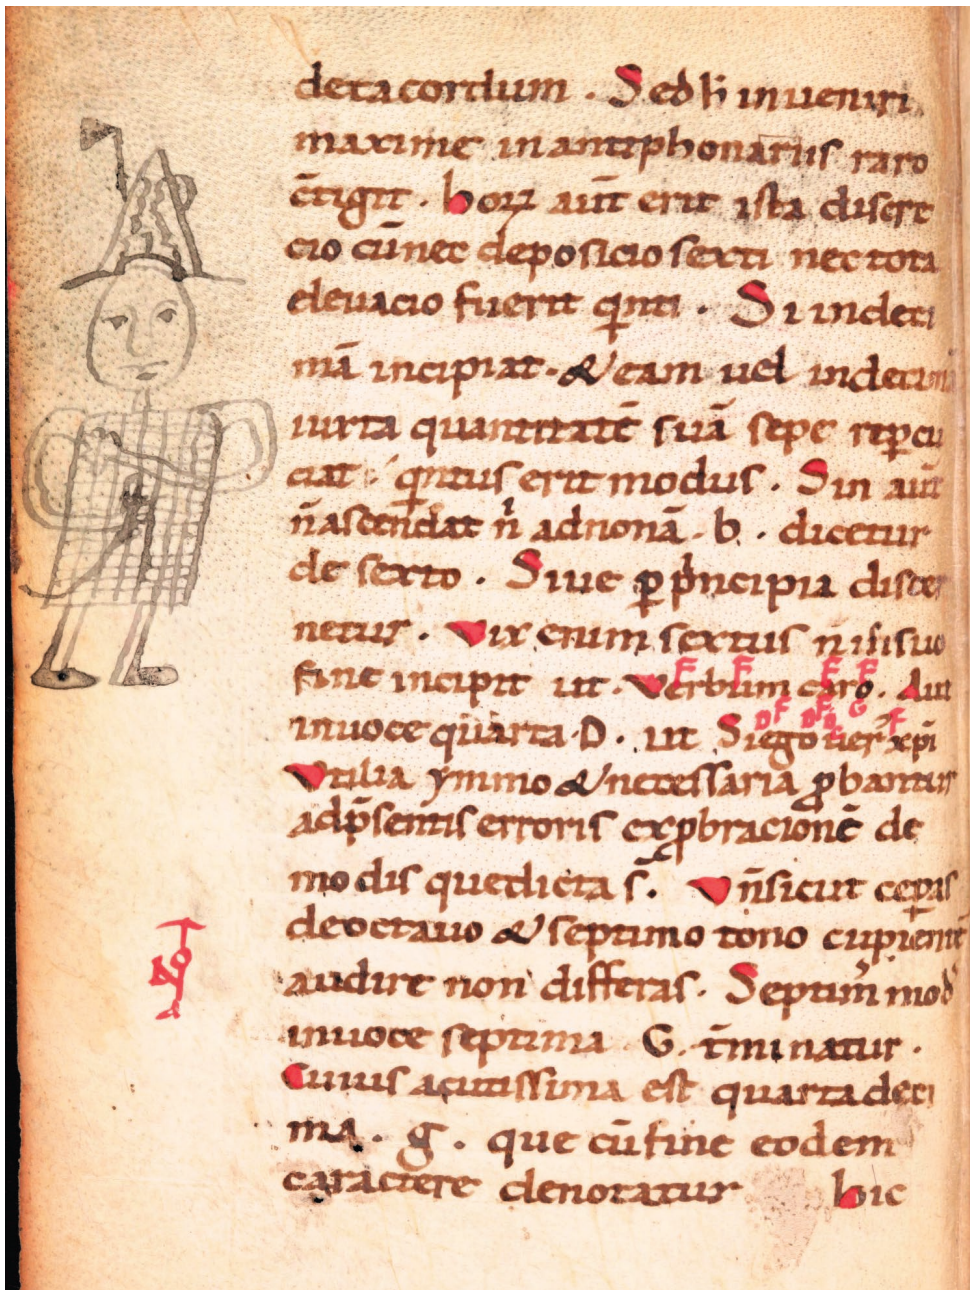 decacordum . Sed h inueniri
maxime in antiphonariis raro
c̄tigit . hoꝝ aut̄ erit ista discre
cio cū nec deposicio sexti nec tota
eleuacio fuerit q̇nti . Si in deci
mā incipiat . & eam uel in decimā
iuxta quantitatē suā sepe reꝑcu
ciat q̇ntus erit modus . Sin aut̄
n̄ ascendat n̄ ad nonā . b . dicetur
de sexto . Siue ꝑ principia discer
netur . Vix enim sextus n̄ i suo
fine incipit ut . Verbum caro . Aut
F F F F
in uoce quarta . D . ut Si ego uer xp̄i
D F D F D G F E
Vtilia ymmo & necessaria ꝓbantur
ad p̄sentis erroris exꝓbracionē de
modis que dicta s̄ . Vn̄ sicut cepas
de octauo & septimo tono cupient̄
audire non differas . Septim᾿ mod᾿
in uoce septima G . t̄minatur .
Cuius acutissima est quarta deci
ma . g . que cū fine eodem
caractere denotatur hic